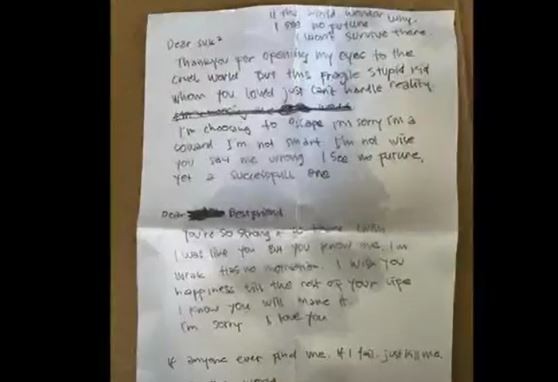 If the world wonder why.
I see no future
I won't survive there.
Dear suk²
Thankyou for opening my eyes to the
cruel world But this fragile stupid kid
whom you loved just can't handle reality
I'm choosing to escape I'm sorry I'm a
coward I'm not smart I'm not wise
you say me wrong I see no future,
yet a successfull one
Dear Bestfriend
You're so strong wish
I was like you But you know me. I'm
weak Has no motivation. I wish you
happiness till the rest of your life
I know you will make it.
I'm sorry I love you
If anyone ever find me. If I fail. just kill me.